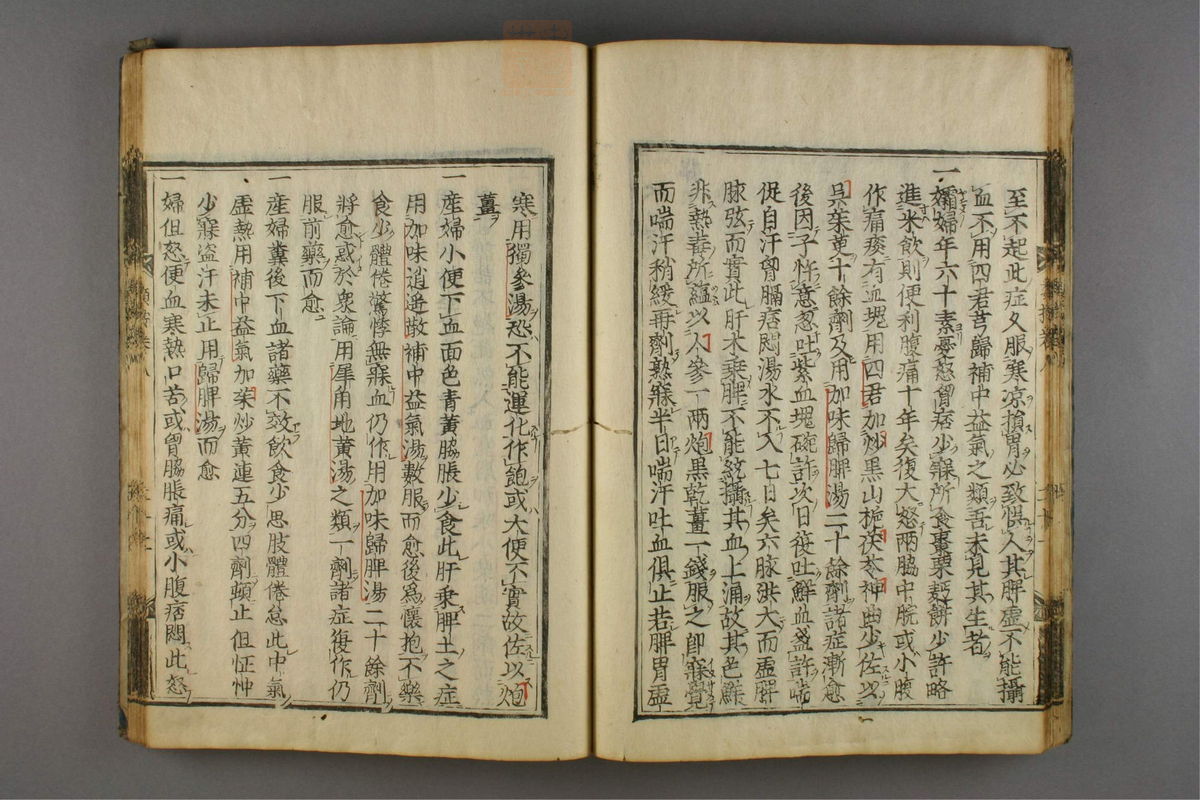 至不起此症又服寒凉損胃必致悞人其脾虛不能攝
血不用四君芎歸補中益氣之類吾未見其生者
一孀婦年六十素憂怒胷痞少寐所食棗栗麪餅少許略
進米飲則便利腹痛十年矣復大怒兩脇中脘或小腹
作痛痠有血塊用四君加炒黒山梔茯神神曲少佐以
吳茱萸十餘劑及用加味歸脾湯二十餘劑諸症漸愈
後因子忤意忽吐紫血塊碗許次日復吐鮮血盞許喘
促自汗胷膈痞悶湯水不入七日矣六脉洪大而虛脾
脉弦而實此肝木乘脾不能統攝其血上涌故其色鮮
非熱毒所蘊以人參一兩炮黒乾薑一錢服之即寐覺
而喘汗稍緩再劑熟寐半日喘汗吐血俱止若脾胃虛
寒用獨參湯恐不能運化作飽或大便不實故佐以炮
薑
一産婦小便下血面色青黃脇脹少食此肝乘脾土之症
用加味逍遙散補中益氣湯數服而愈後爲懷抱不樂
食少體倦驚悸無寐血仍作用加味歸脾湯二十餘劑
將愈或於衆論用犀角地黃湯之類一劑諸症復作仍
服前藥而愈
一産婦糞後下血諸藥不效飲食少思肢體倦怠此中氣
虛熱用補中益氣加茱炒黃連五分四劑頓止但怔忡
少寐盜汗未止用歸脾湯而愈
一婦但怒便血寒熱口苦或胷脇脹痛或小腹痞悶此怒